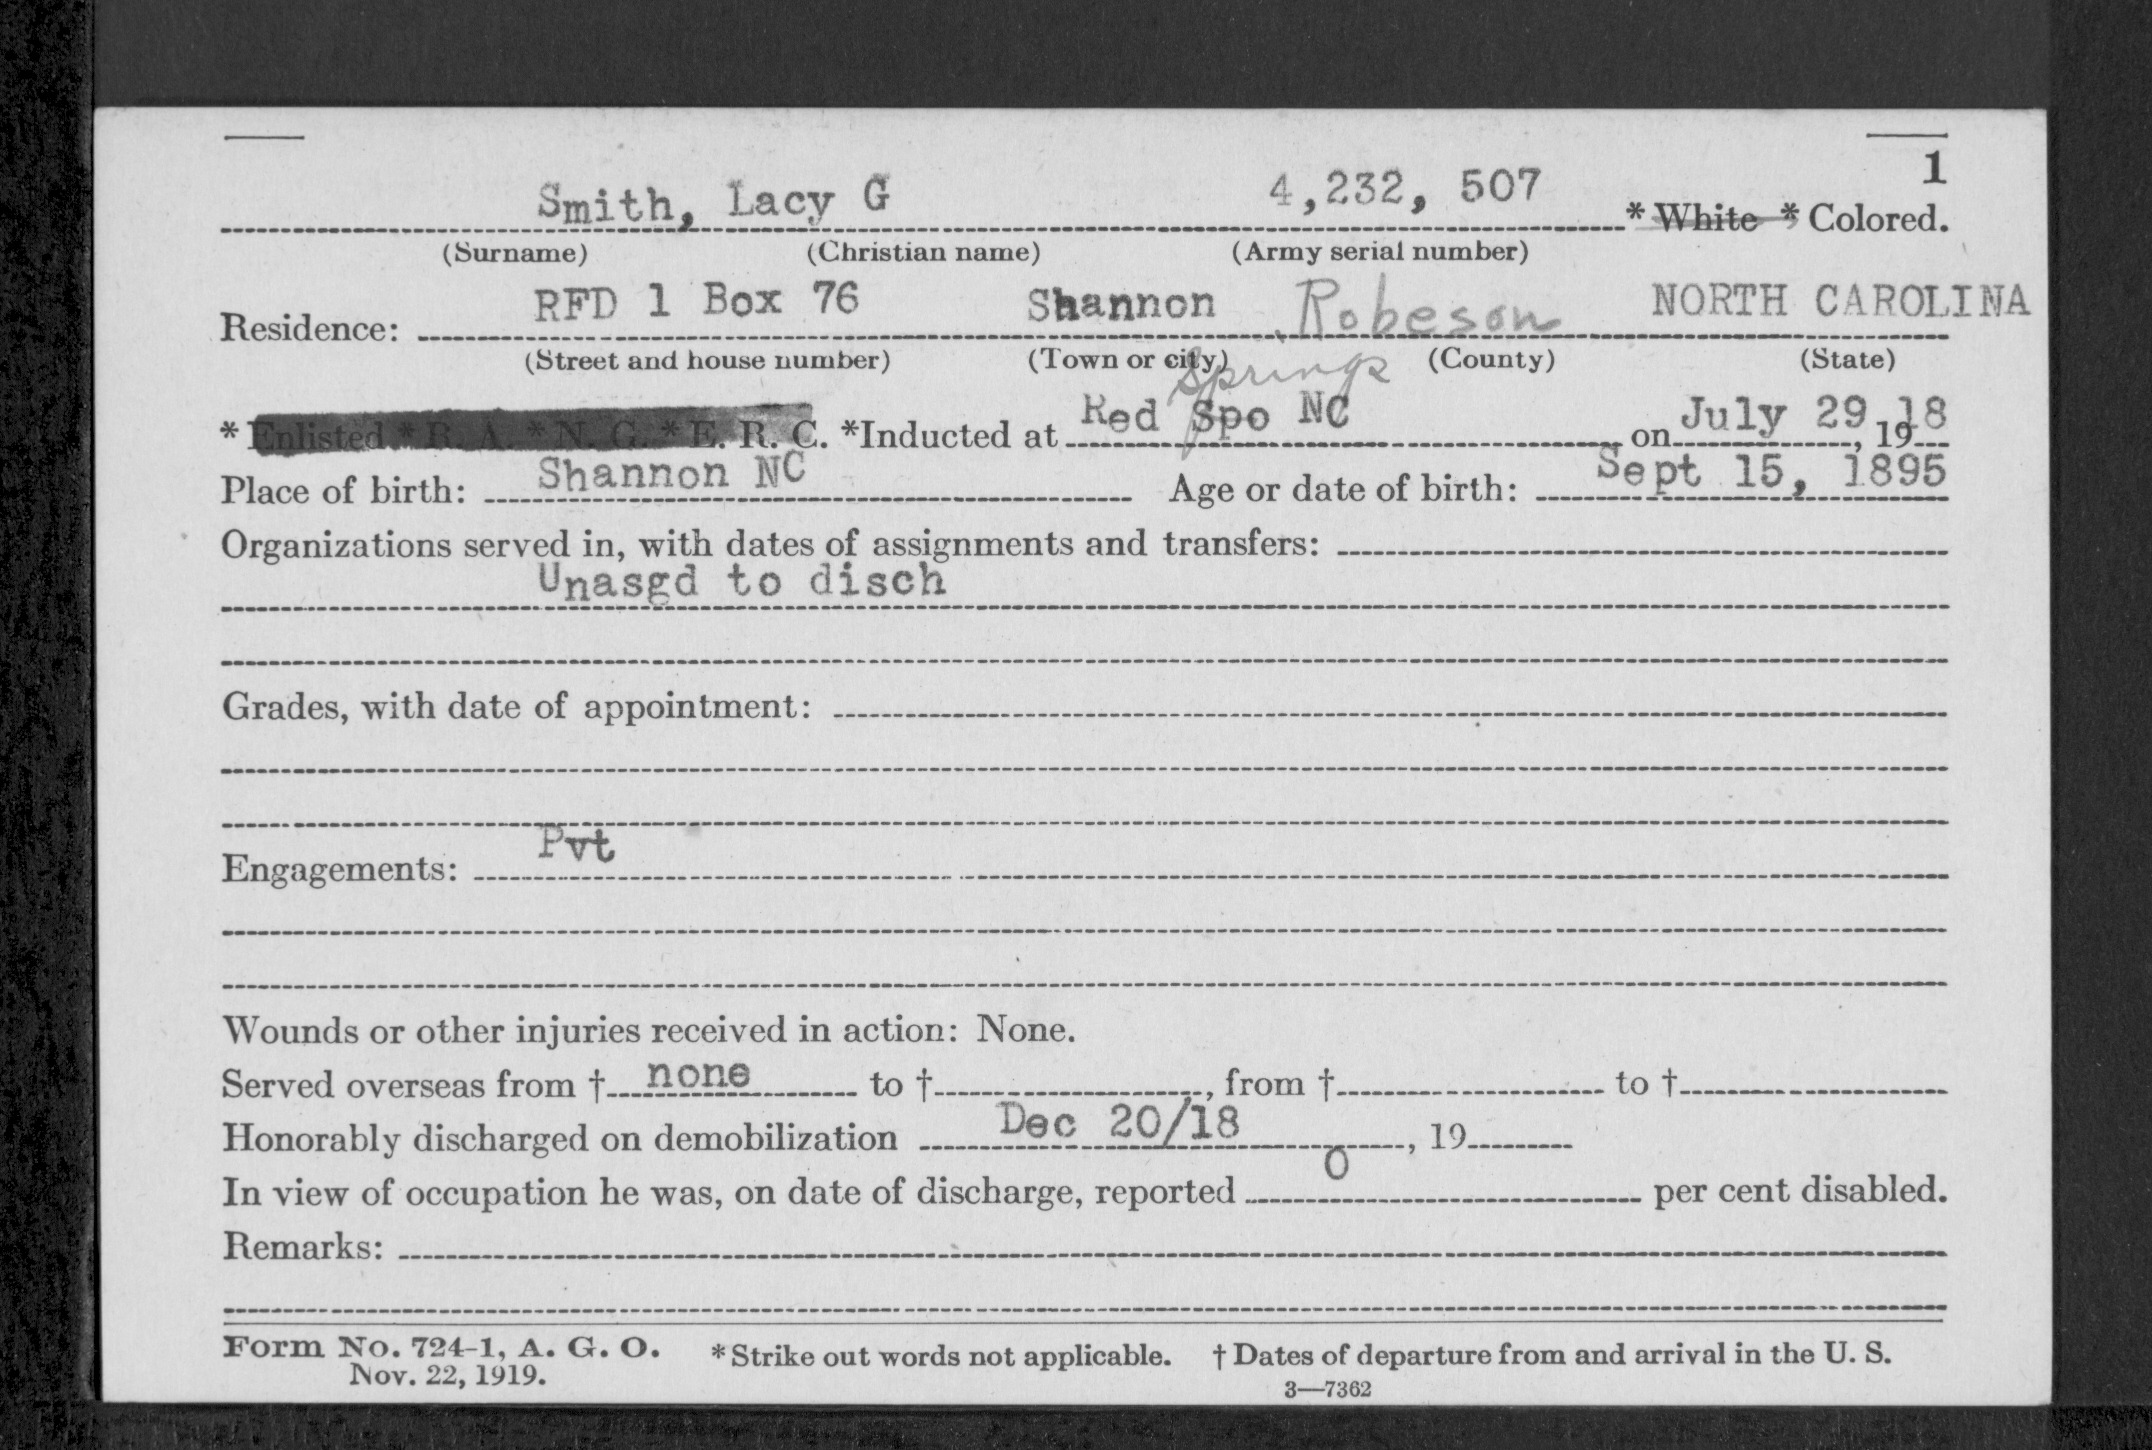 1
Smith, Lacy G 4,232, 507 * White * Colored.
(Surname) (Christian name) (Army serial number)
Residence: RFD 1 Box 76 Shannon Robeson NORTH CAROLINA
(Street and house number) (Town or city) (County) (State)
Springs
* Enlisted * R. A. * N. G. * E. R. C. *Inducted at Red Spo NC on July 29, 1918
Place of birth: Shannon NC Age or date of birth: Sept 15, 1895
Organizations served in, with dates of assignments and transfers:
Unasgd to disch
Grades, with date of appointment:
Pvt
Engagements:
Wounds or other injuries received in action: None.
Served overseas from † none to † , from † to †
Honorably discharged on demobilization Dec 20/18 , 19
In view of occupation he was, on date of discharge, reported 0 per cent disabled.
Remarks:
Form No. 724-1, A. G. O. * Strike out words not applicable. † Dates of departure from and arrival in the U. S.
Nov. 22, 1919.
3—7362